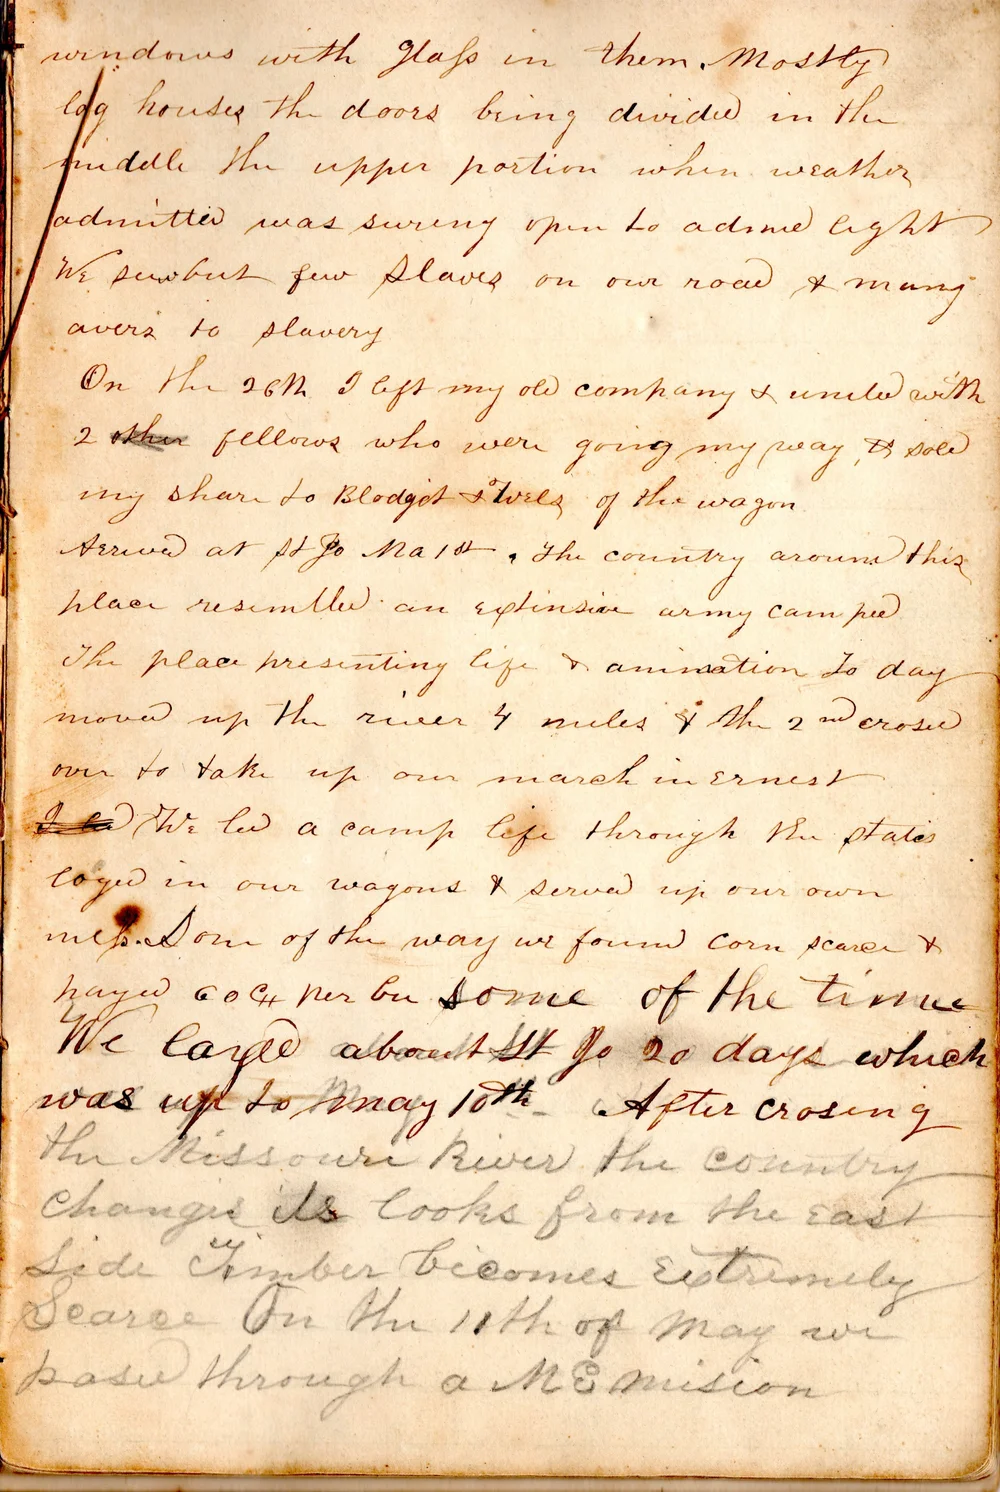 windows with glass in them. Mostly
log houses the doors being divided in the
middle the upper portion when weather
admitted was swung open to admit light
We saw but few Slaves on our road & many
avers to slavery
On the 26th I left my old company & united with
2 other fellows who were going my way, & sold
my share to Blodget & Wels of the wagon
Arrived at St Jo Ma 1st. The country around this
place resembled an extensive army camped
The place presenting life & animation To day
moved up the river 4 miles & the 2nd crosed
over to take up our march in ernest
I led We led a camp life through the states
loged in our wagons & served up our own
mess. Some of the way we found corn scarce &
payed 60 cts per bu some of the time
We layed about St Jo 20 days which
was up to may 10th - After crosing
the Missouri River the country
changes its looks from the east
Side Timber becomes extremely
Scarce On the 11th of May we
pased through a M E mision